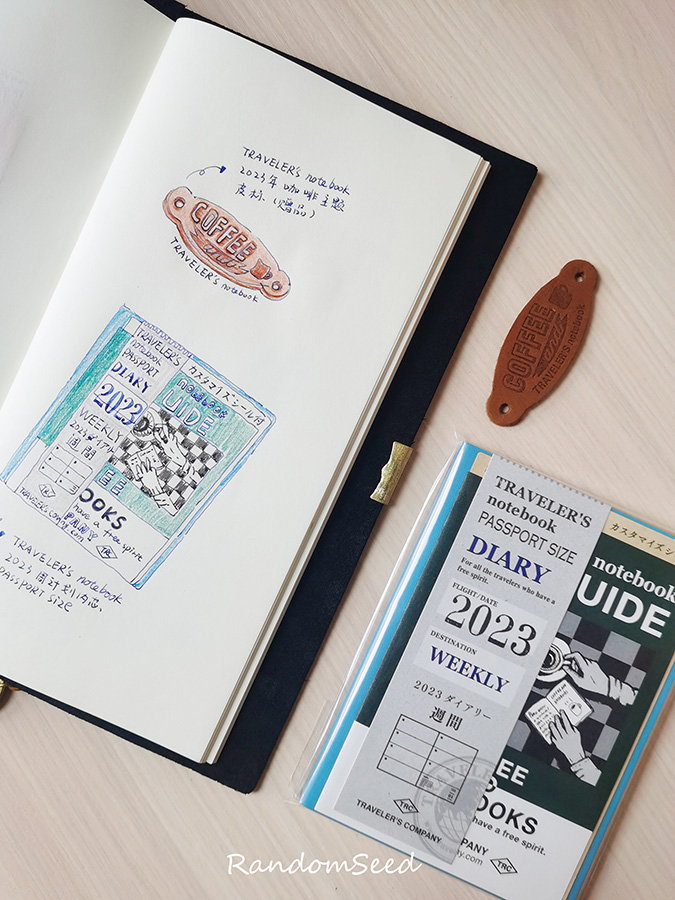 TRAVELER'S notebook
2023年 咖啡主题
皮标 (赠品)
COFFEE
TRAVELER'S notebook
TRAVELER'S
notebook
PASSPORT
DIARY
2023
WEEKLY
週間
カスタマイズシール付
notebook
UIDE
EE
OOKS
have a free spirit
TRC
TRAVELER'S notebook
2023 周计划内芯.
PASSPORT Size
COFFEE
TRAVELER'S notebook
TRAVELER'S
notebook
PASSPORT SIZE
DIARY
For all the travelers who have a
free spirit.
FLIGHT/DATE
2023
DESTINATION
WEEKLY
2023 ダイアリー
週間
TRC
TRAVELER'S COMPANY
カスタマイズシ
notebook
UIDE
EE
OOKS
have a free spirit.
PANY
.com
TRC
RandomSeed